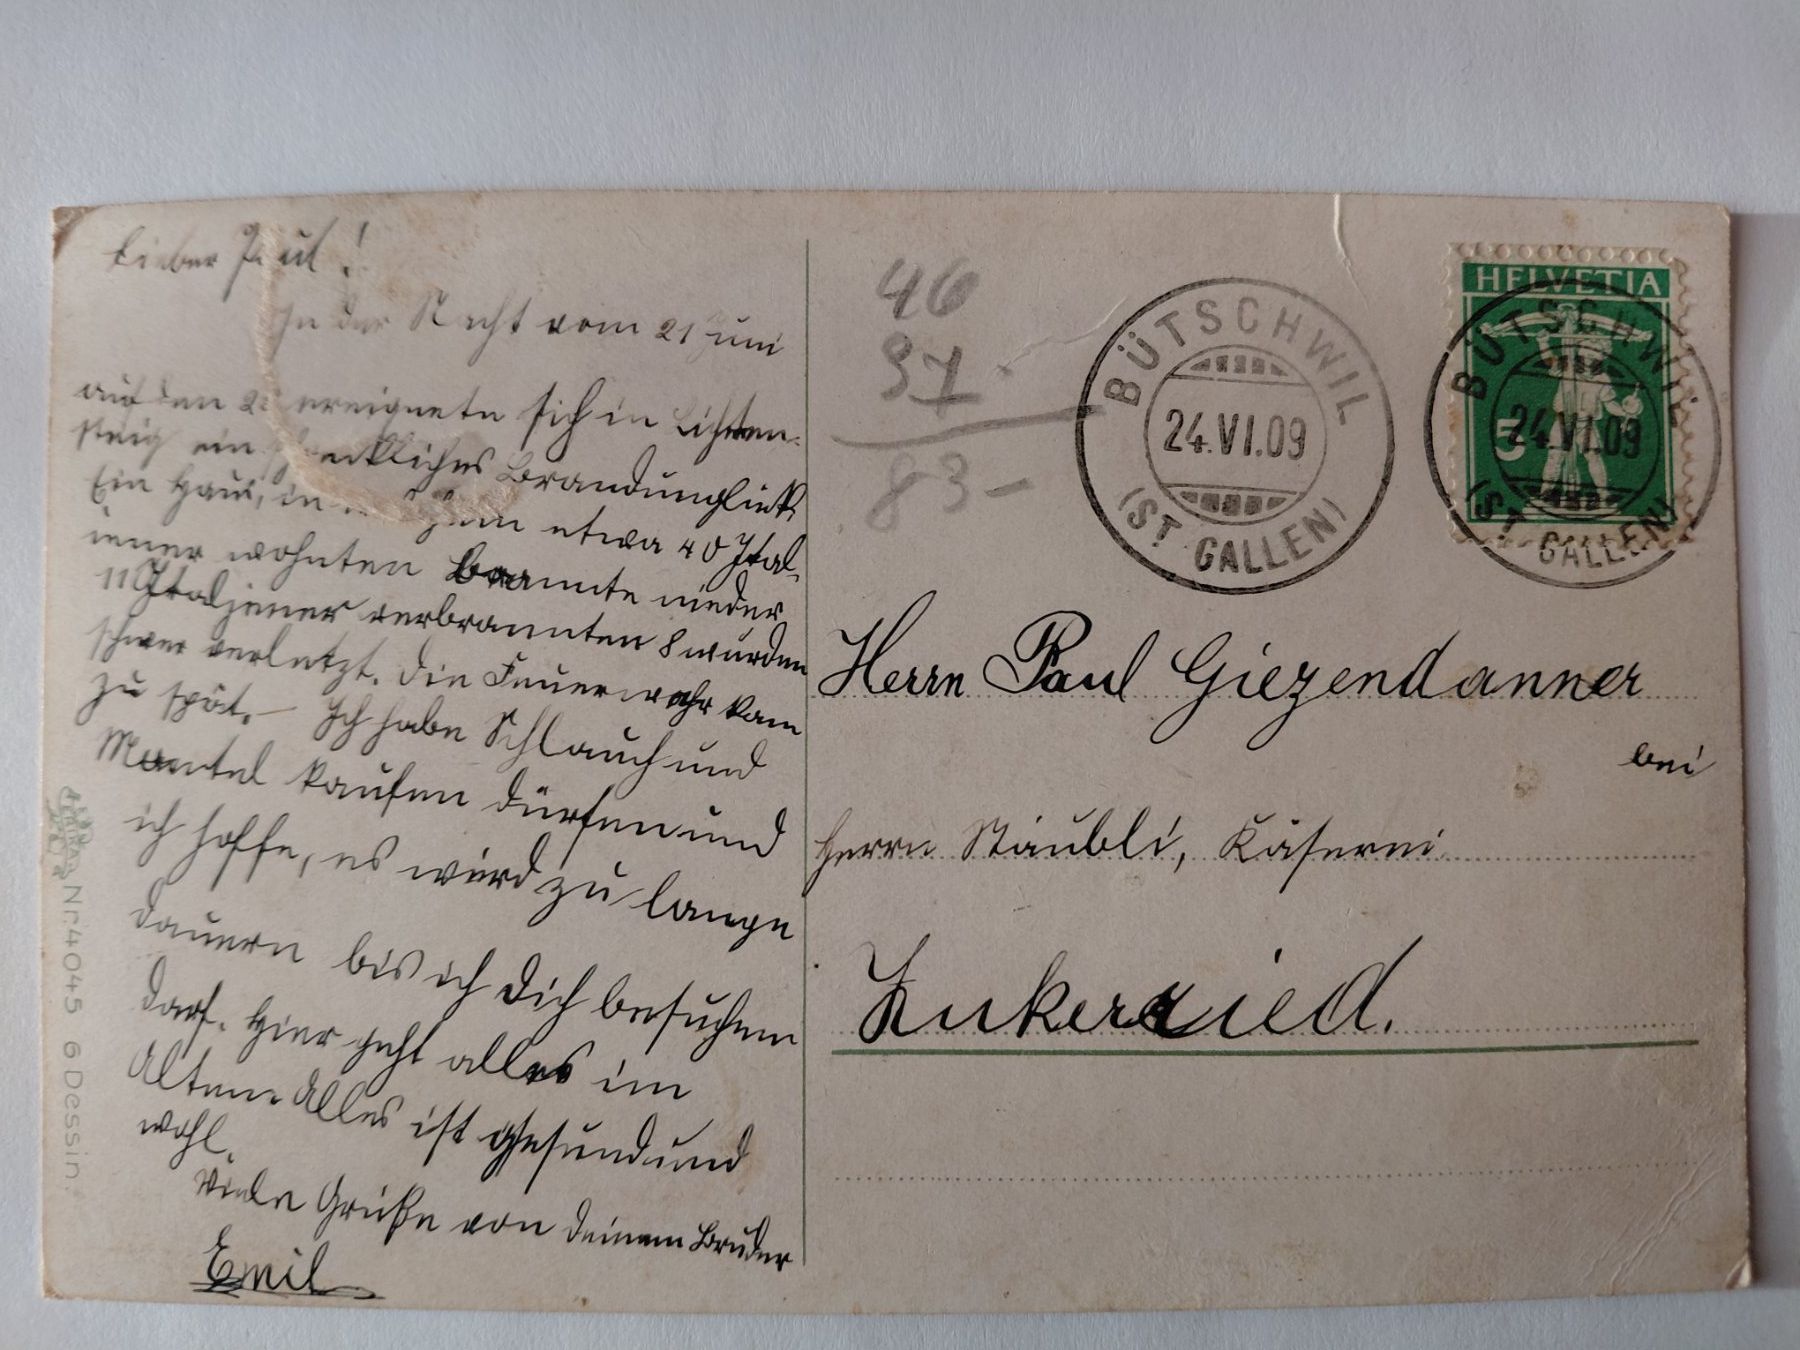 Lieber Paul!
In der Nacht vom 21 Juni
auf den 22 ereignete sich in Lichten-
steig ein schreckliches Brandunglück.
Ein Haus, in welchem etwa 40 Ital-
iener wohnten brannte nieder
11 Italjener verbrannten 8 wurden
schwer verletzt. Die Feuerwehr kam
zu spät. – Ich habe Schlauch und
Mantel kaufen dürfen und
ich hoffe, es wird zu lange
dauern bis ich Dich besuchen
darf. Hier geht alles im
Alten. Alles ist gesund und
wohl.
Viele Grüße von Deinem Bruder
Emil
Nr. 4045 6 Dessin.
46
37
83 –
BÜTSCHWIL
24.VI.09
(ST. GALLEN)
HELVETIA
5
BÜTSCHWIL
24.VI.09
(ST. GALLEN)
Herrn Paul Giezendanner
bei
Herrn Stäubli, Käserei
Zukerried.